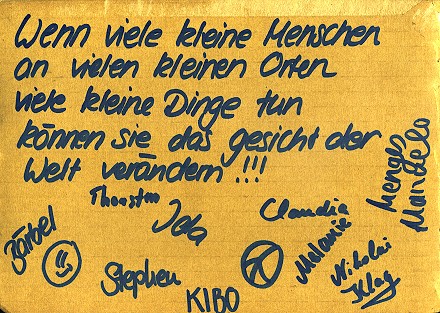 Wenn viele kleine Menschen
an vielen kleinen Orten
viele kleine Dinge tun
können sie das gesicht der
Welt verändern!!!
Thorsten
Jola
Claudia
Bärbel
Stephen
KIBO
Melanie
Nikolai
Klag